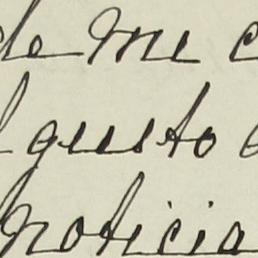 de mi
gusto
noticia